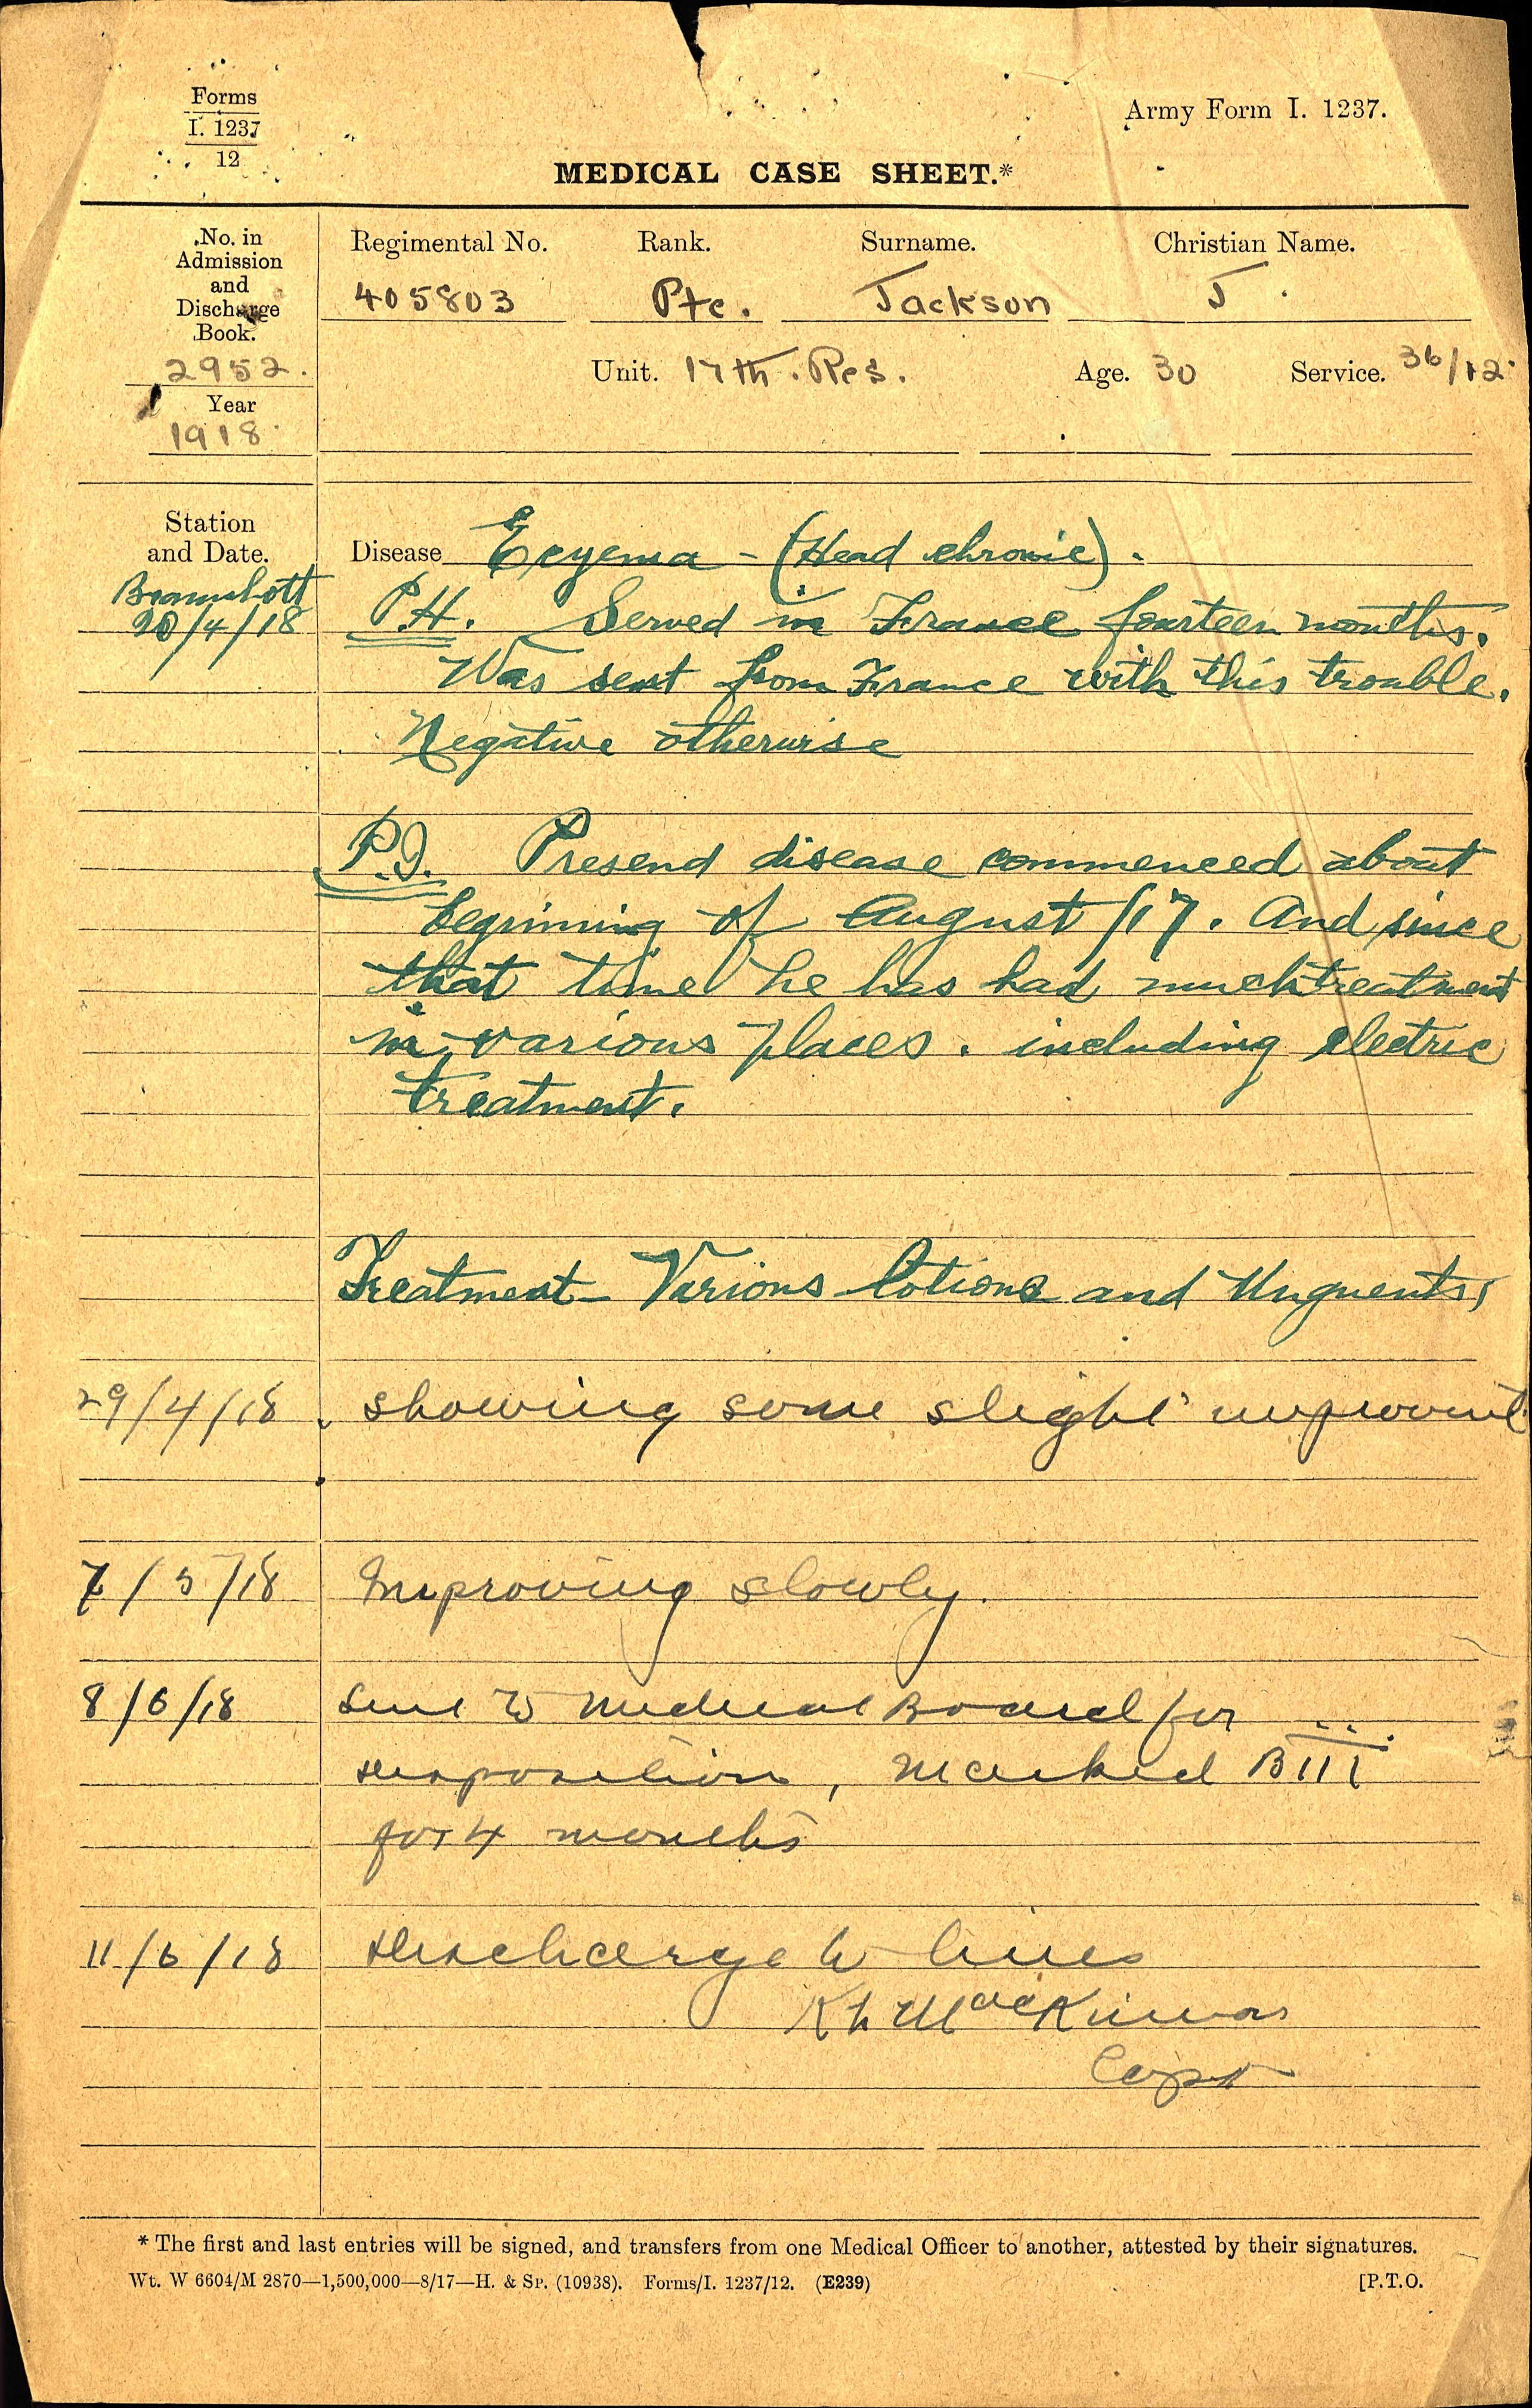 Forms
I. 1237
12
Army Form I. 1237.
MEDICAL CASE SHEET.*
No. in
Admission
and
Discharge
Book.
2952.
Year
1918.
Regimental No. Rank. Surname. Christian Name.
405803 Pte. Jackson J.
Unit. 17th. Res. Age. 30 Service. 36/12
Station
and Date.
Disease Eczema - (Head chronic).
Bramshott
20/4/18
P.H. Served in France fourteen months.
Was sent from France with this trouble.
Negative otherwise
P.I. Presend disease commenced about
beginning of August /17. And since
that time he has had much treatment
in various places. including electric
treatment.
Treatment - Various lotions and Unguents,
29/4/18 showing some slight improvment
7/5/18 Improving slowly.
8/6/18 Sent to Medical Board for
disposition, Marked BIII
for 4 months
11/6/18 discharge to lines
MacKinnon
Capt
* The first and last entries will be signed, and transfers from one Medical Officer to another, attested by their signatures.
Wt. W 6604/M 2870—1,500,000—8/17—H. & Sp. (10938). Forms/I. 1237/12. (E239) [P.T.O.